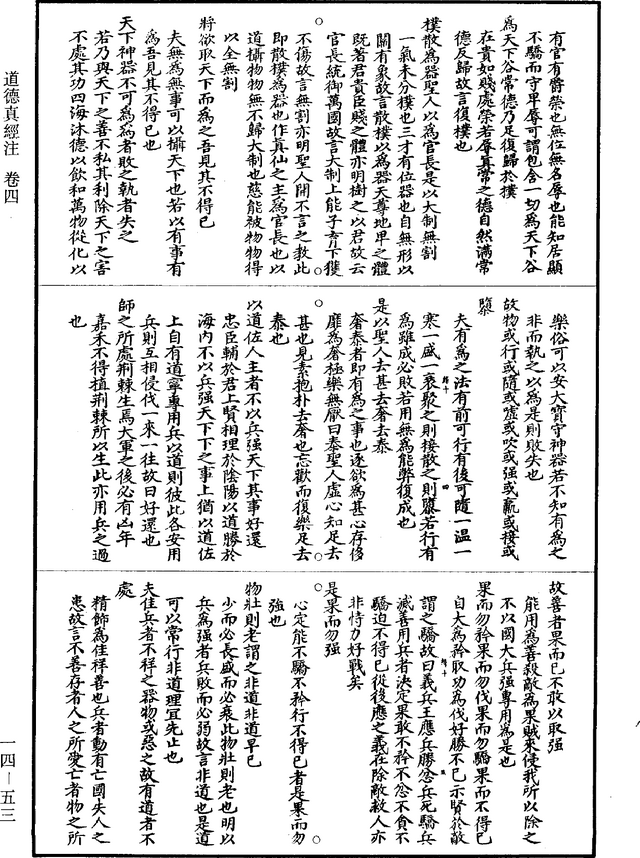 道德真經注　卷四
一四—五三
有官有爵榮也無位無名辱也能知居顯
不驕而守卑辱可謂包含一切為天下谷
為天下谷常德乃足復歸於樸
在貴如賤處榮若辱真常之德自然滿常
德反歸故言復樸也
樸散為器聖人以為官長是以大制無割
一氣未分樸也三才有位器也自無形以
關有象故言散樸以為器天尊地卑之體
既著君貴臣賤之體亦明樹之以君故云
官長統御萬國故言大制上能子育下獲
不傷故言無割亦明聖人開不言之教此
即散樸為器也作真仙之主為官長也以
道攝物物無不歸大制也慈能被物物得
以全無割
將欲取天下而為之吾見其不得已
夫無為無事可以攝天下也若以有事有
為吾見其不得已也
天下神器不可為為者敗之執者失之
若乃與天下之善不私其利除天下之害
不處其功四海沐德以飲和萬物從化以
樂俗可以安大寶守神器若不知有為之
非而執之以為是則敗失也
故物或行或隨或噓或吹或强或羸或接或
隳
夫有為之法有前可行有後可隨一溫一
寒一盛一衰聚之則接散之則隳若行有
為雖成必敗若用無為能弊復成也
是以聖人去甚去奢去泰
奢泰者即有為之事也逐欲為甚心存侈
靡為奢極樂無厭曰泰聖人虛心知足去
甚也見素抱朴去奢也忘歡而復樂足去
泰也
以道佐人主者不以兵强天下其事好還
忠臣輔於君上賢相理於陰陽以道勝於
海內不以兵强天下下之事上猶以道佐
上自有道寧專用兵以道則彼此各安用
兵則互相侵伐一來一往故曰好還也
師之所處荆棘生焉大軍之後必有凶年
嘉禾不得植荆棘所以生此亦用兵之過
也
故善者果而已不敢以取强
能用為善殺敵為果賊來侵我所以除之
不以國大兵强專用為是也
果而勿矜果而勿伐果而勿驕果而不得已
自大為矜取功為伐好勝不已示賢於敵
謂之驕故曰義兵王應兵勝忿兵死驕兵
滅善用兵者決定果敢不矜不忿不貪不
驕迫不得已從後應之義在除敵救人亦
非恃力好戰矣
是果而勿强
心定能不驕不矜行不得已者是果而勿
强也
物壯則老謂之非道非道早已
少而必長盛而必衰此物壯則老也明以
兵為强者兵敗而必弱故言非道也是道
可以常行非道理宜先止也
夫佳兵者不祥之器物或惡之故有道者不
處
精飾為佳祥善也兵者動有亡國失人之
患故言不善存者人之所愛亡者物之所